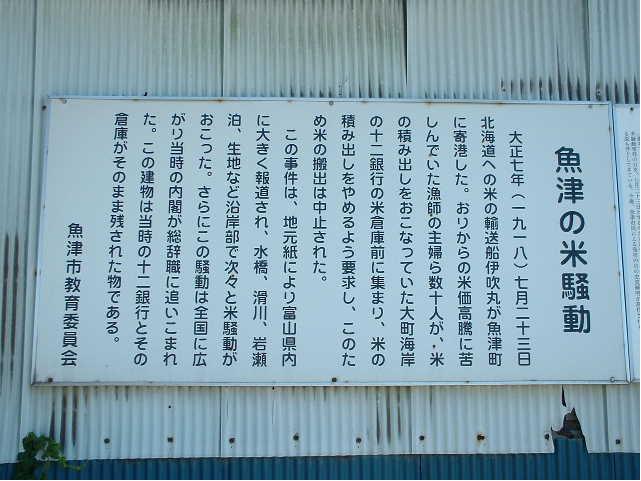 魚津の米騒動
大正七年（一九一八）七月二十三日
北海道への米の輸送船伊吹丸が魚津町
に寄港した。おりからの米価高騰に苦
しんでいた漁師の主婦ら数十人が、米
の積み出しをおこなっていた大町海岸
の十二銀行の米倉庫前に集まり、米の
積み出しをやめるよう要求し、このた
め米の搬出は中止された。
この事件は、地元紙により富山県内
に大きく報道され、水橋、滑川、岩瀬
泊、生地など沿岸部で次々と米騒動が
おこった。さらにこの騒動は全国に広
がり当時の内閣が総辞職に追いこまれ
た。この建物は当時の十二銀行とその
倉庫がそのまま残された物である。
魚津市教育委員会